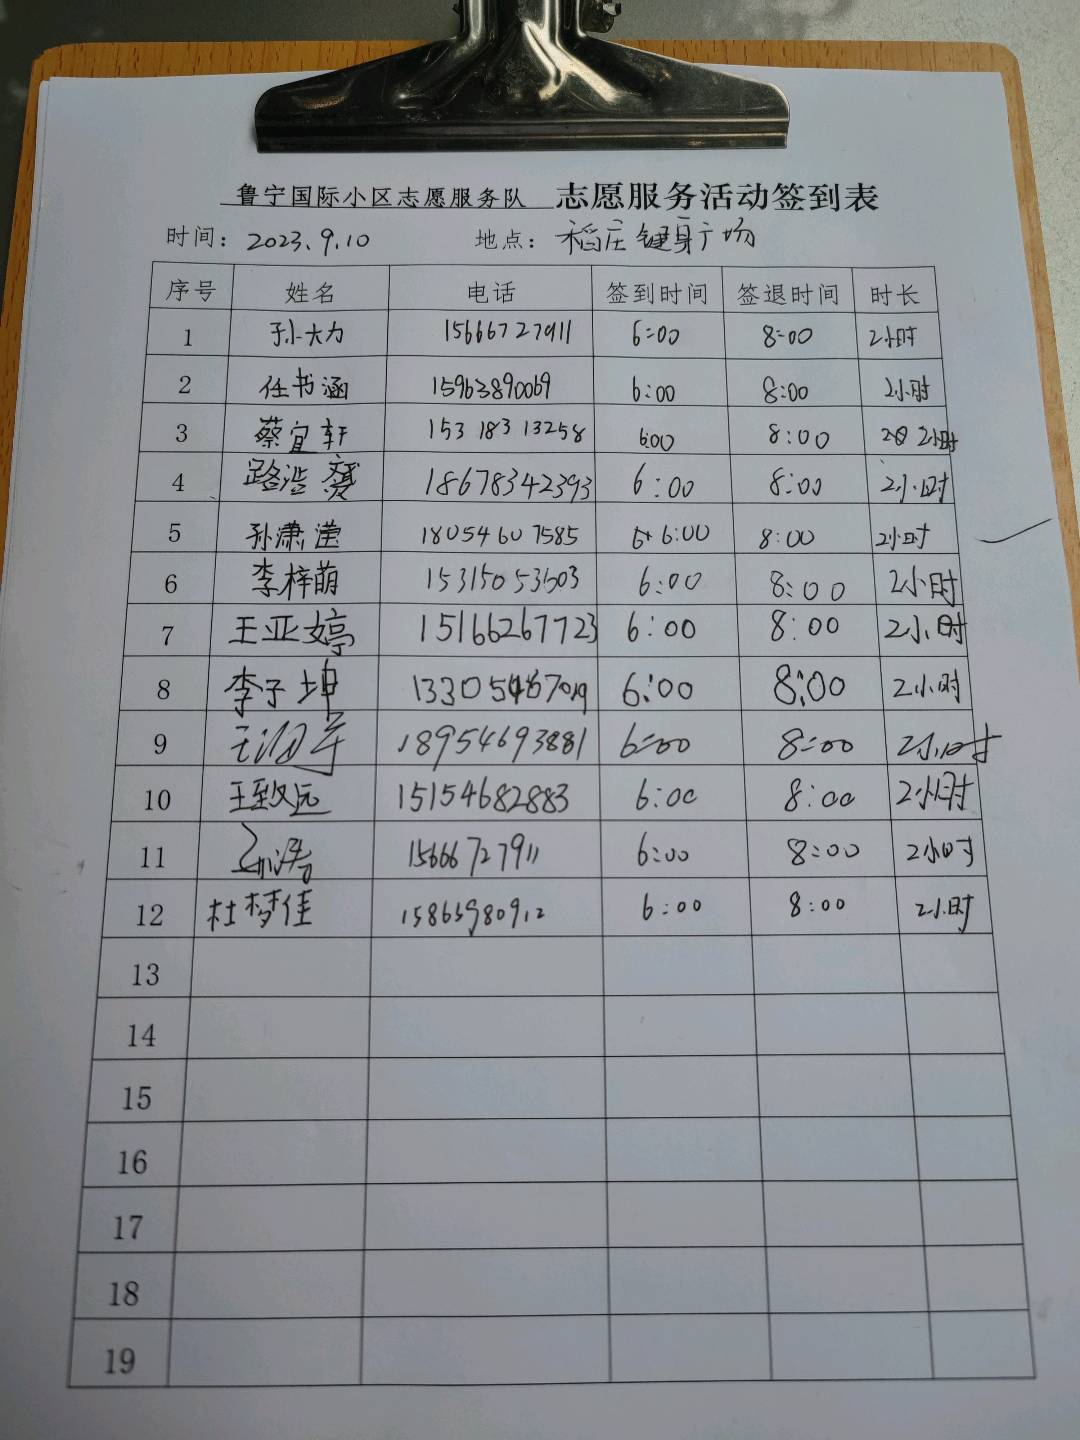 鲁宁国际小区志愿服务队 志愿服务活动签到表
时间：2023.9.10 地点：稻庄健身广场
序号 姓名 电话 签到时间 签退时间 时长
1 孙大力 15666727911 6:00 8:00 2小时
2 任书涵 15963890069 6:00 8:00 2小时
3 蔡宜轩 15318313258 6:00 8:00 2小时
4 路浩 18678342393 6:00 8:00 2小时
5 孙潇滢 18054607585 6:00 8:00 2小时
6 李梓萌 15315053503 6:00 8:00 2小时
7 王亚婷 15166267723 6:00 8:00 2小时
8 李子坤 6:00 8:00 2小时
9 18954693881 6:00 8:00 2小时
10 王致远 15154682883 6:00 8:00 2小时
11 孙涛 15666727911 6:00 8:00 2小时
12 杜梦佳 15865980912 6:00 8:00 2小时
13
14
15
16
17
18
19